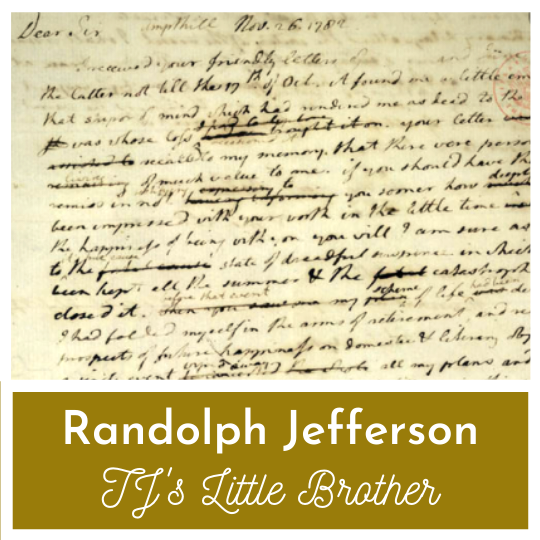 Dear Sir Ampthill Nov. 26. 1782
received your friendly letters of and
the latter not till the 17th of Oct. it found me a little em
that stupor of mind which had rendered me as dead to the
was whose loss brought it on. your letter
recalled to my memory, that there were person
of much value to me. if you should have th
remiss in not you sooner how deeply
been impressed with your worth in the little time
the happiness of being with you you will I am sure as
to the state of dreadful suspence in which
been kept all the summer & the catastroph
before that event scheme had been
closed it. my of life de
I had folded myself in the arms of retirement, and re
prospects of future happiness on domestic & literary obj
wiped away
a single event all my plans and
Randolph Jefferson
TJ's Little Brother